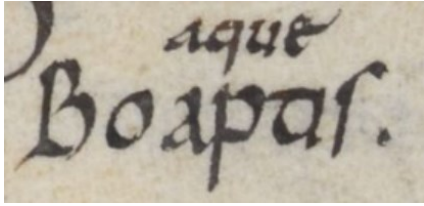 aque
Boaptis.